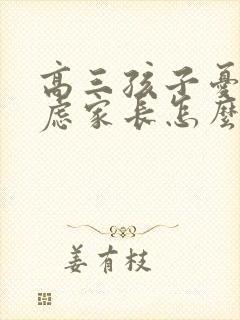 高三孩子憂
慮家长怎麼
姜有枝